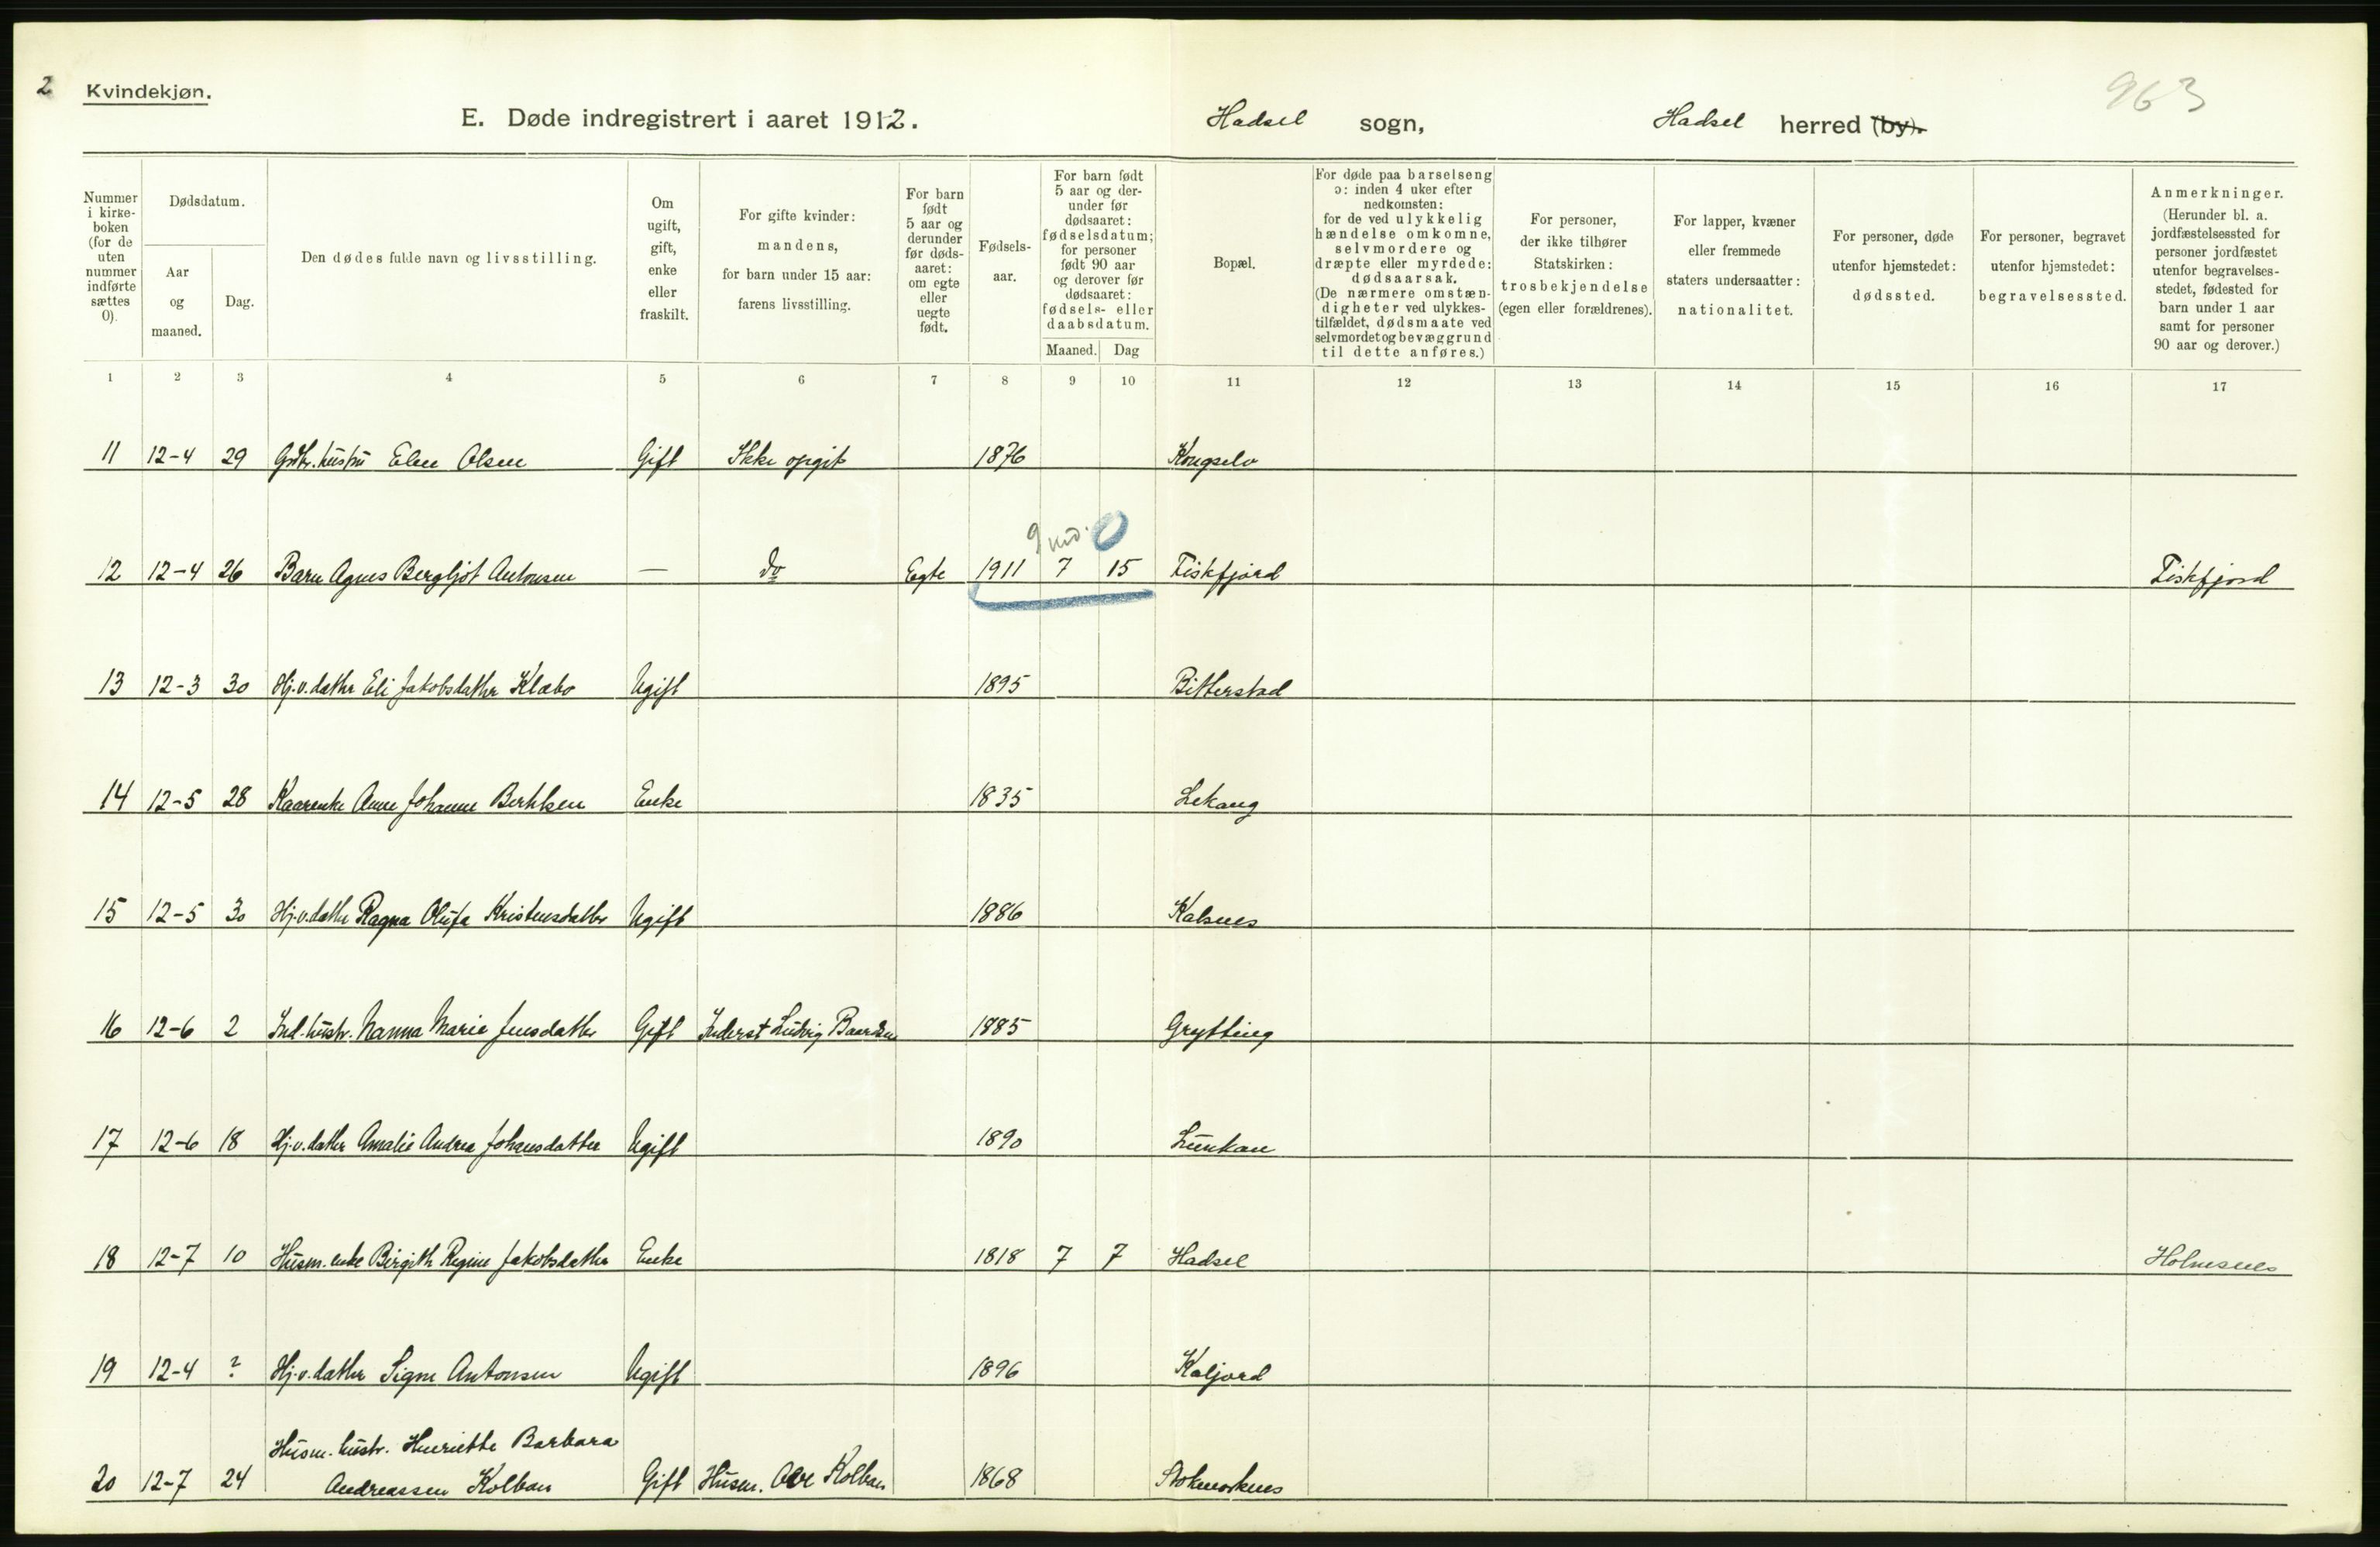 2 Kvindekjøn.
963
E. Døde indregistrert i aaret 1912. Hadsel sogn, Hadsel herred (by).
Nummer i kirke- boken (for de uten nummer indførte sættes 0).
Dødsdatum.
Aar og maaned.
Dag.
Den dødes fulde navn og livsstilling.
Om ugift, gift, enke eller fraskilt.
For gifte kvinder: mandens, for barn under 15 aar: farens livsstilling.
For barn født 5 aar og derunder før døds- aaret: om egte eller uegte født.
Fødsels- aar.
For barn født 5 aar og der- under før dødsaaret: fødselsdatum; for personer født 90 aar og derover før dødsaaret: fødsels- eller daabsdatum.
Maaned. Dag
Bopæl.
For døde paa barselseng ɔ: inden 4 uker efter nedkomsten: for de ved ulykkelig hændelse omkomne, selvmordere og dræpte eller myrdede: dødsaarsak. (De nærmere omstæn- digheter ved ulykkes- tilfældet, dødsmaate ved selvmordet og bevæggrund til dette anføres.)
For personer, der ikke tilhører Statskirken: trosbekjendelse (egen eller forældrenes).
For lapper, kvæner eller fremmede staters undersaatter: nationalitet.
For personer, døde utenfor hjemstedet: dødssted.
For personer, begravet utenfor hjemstedet: begravelsessted.
Anmerkninger. (Herunder bl. a. jordfæstelsessted for personer jordfæstet utenfor begravelses- stedet, fødested for barn under 1 aar samt for personer 90 aar og derover.)
1 2 3 4 5 6 7 8 9 10 11 12 13 14 15 16 17
11 12-4 29 Gdbr. hustru Elen Olsen Gift Ikke opgit 1876 Kongselv
9 md. 0
12 12-4 26 Barn Agnes Bergljot Antonsen — do Egte 1911 7 15 Fiskfjord Fiskfjord
13 12-3 30 Hj.v. datter Eli Jakobsdatter Klæbo Ugift 1895 Bitterstad
14 12-5 28 Kaarenke Anne Johanne Berthsen Enke 1835 Lekang
15 12-5 30 Hj.v. datter Ragna Olufa Kristensdatter Ugift 1886 Kalsnes
16 12-6 2 Ind. hustr. Nanna Marie Jensdatter Gift Inderst Ludvig Baardsen 1885 Grytting
17 12-6 18 Hj.v. datter Amalie Andrea Johansdatter Ugift 1890 Lunkan
18 12-7 10 Husm. enke Birgith Regine Jakobsdatter Enke 1818 7 7 Hadsel Holmesnes
19 12-4 ? Hj.v. datter Signe Antonsen Ugift 1896 Kaljord
Husm. hustr. Henriette Barbara
20 12-7 24 Andreassen Kolban Gift Husm. Kolban 1868 Stokmarknes